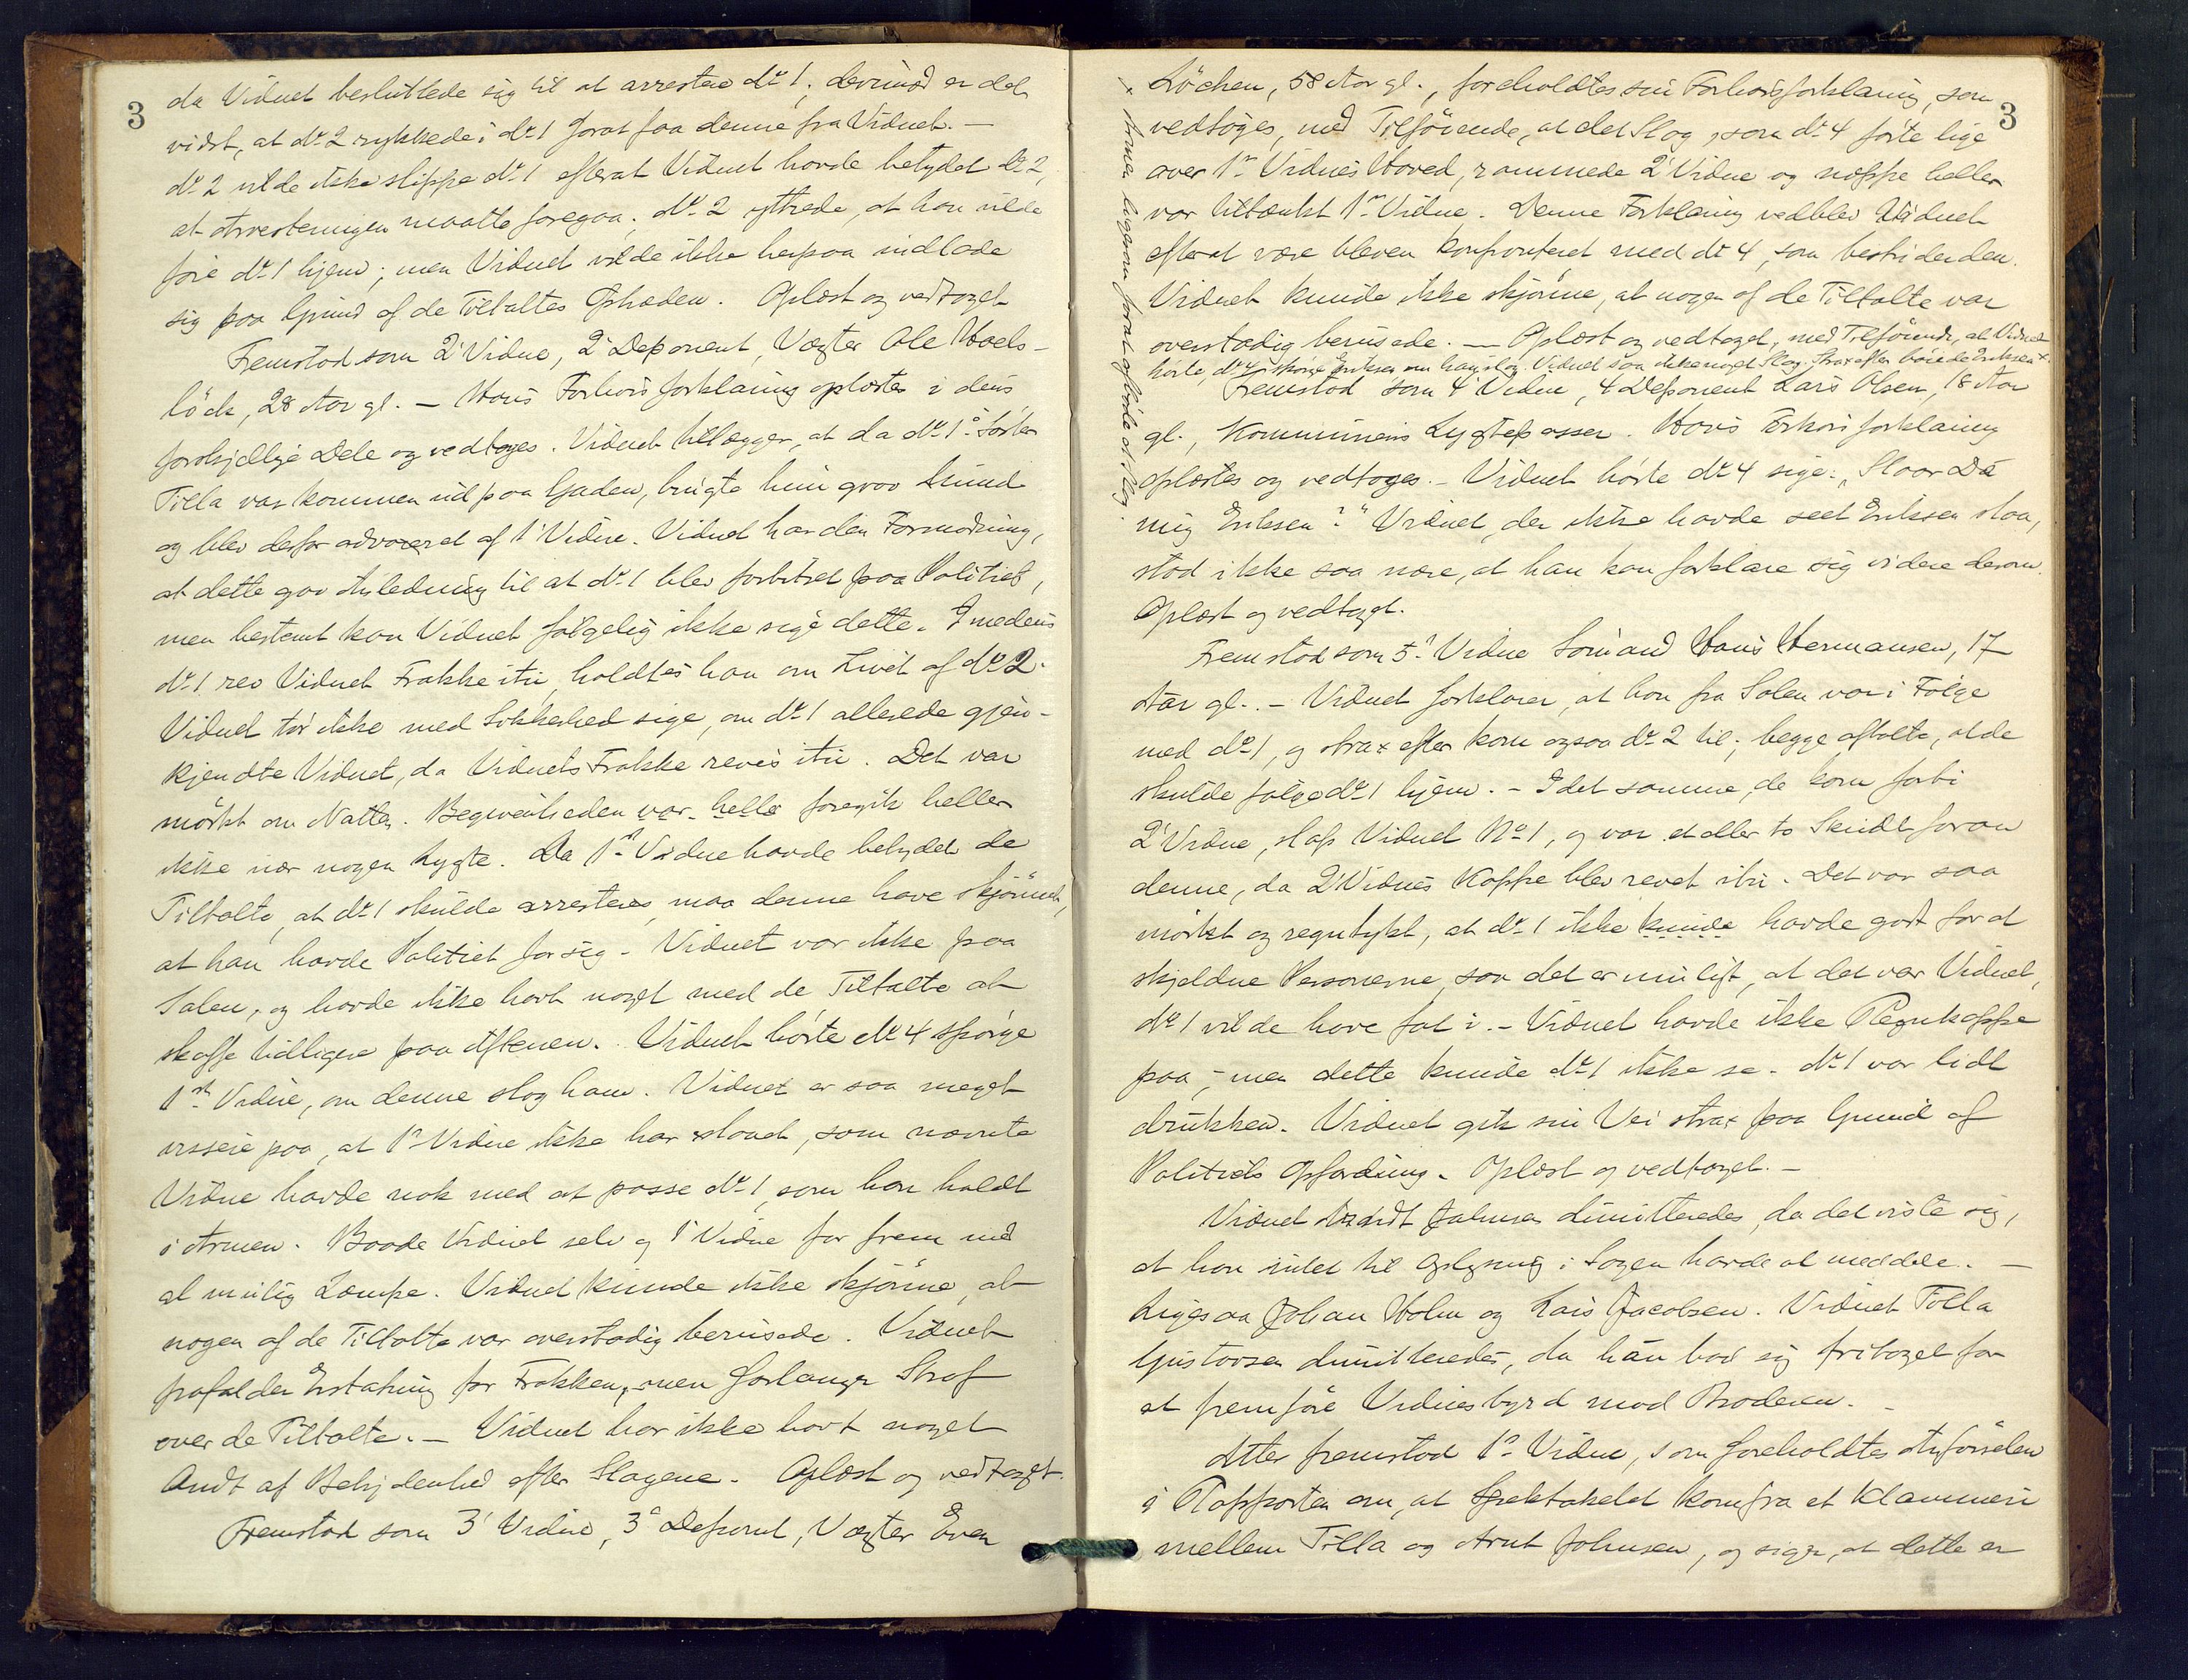 3
da Vidnet besluttede sig til at arrestere No 1; derimod er det
vidst, at No 2 rykkede i No 1 forat faa denne fra Vidnet. —
No 2 vilde ikke slippe No 1 efterat Vidnet havde betydet No 2,
at Arresteringen maatte foregaa. No 2 yttrede, at han vilde
føre No 1 hjem; men Vidnet vilde ikke herpaa indlade
sig paa Grund af de Tiltaltes Ophæden. Oplæst og vedtaget
Fremstod som 2' Vidne, 2' Deponent, Vægter Ole Hvels-
löck, 28 Aar gl. — Hans Forhørsforklaring oplæstes i dens
forskjellige Dele og vedtoges. Vidnet tillægger, at da No 1's Søster
Tilla var kommen ud paa Gaden, brugte hun grov Mund
og blev derfor advaret af 1' Vidne. Vidnet har den Formodning,
at dette gav Anledning til at No 1 blev forbitret paa Politiet,
men bestemt kan Vidnet følgelig ikke sige dette. Imedens
No 1 rev Vidnet Frakke itu, holdtes han om Livet af No 2.
Vidnet tør ikke med Sikkerhed sige, om No 1 allerede gjen-
kjendte Vidnet, da Vidnets Frakke reves itu. Det var
mørkt om Natten. Begivenheden var heller foregik heller
ikke nær nogen Lygte. Da 1' Vidne havde betydet de
Tiltalte, at No 1 skulde arresteres, maa denne have skjønnet,
at han havde Politiet for sig. Vidnet var ikke paa
Salen, og havde ikke havt noget med de Tiltalte at
skaffe tidligere paa Aftenen. Vidnet hørte No 4 spørge
1ste Vidne, om denne slog ham. Vidnet er saa meget
vissere paa, at 1' Vidne ikke har slaaet, som nævnte
Vidne havde nok med at passe No 1, som han holdt
i Armen. Baade Vidnet selv og 1' Vidne for frem med
al mulig Lempe. Vidnet kunde ikke skjønne, at
nogen af de Tiltalte var overstadig berusede. Vidnet
frafalder Erstatning for Frakken, men forlanger Straf
over de Tiltalte. — Vidnet har ikke havt noget
Ondt af Betydenhed efter Slagene. Oplæst og vedtaget.
Fremstod som 3' Vidne, 3' Deponent, Vægter Even
3
Löchen, 58 Aar gl., foreholdtes sin Forhørsforklaring, som
vedtoges, med Tilføiende, at det Slag, som No 4 førte lige
over 1' Vidnes Hoved, rammede 2' Vidne og neppe heller
var tiltænkt 1' Vidne. Denne Forklaring vedblev Vidnet
efterat være bleven konfronteret med No 4, som bestrider den.
Vidnet kunde ikke skjønne, at nogen af de Tiltalte var
overstadig berusede. — Oplæst og vedtaget, med Tilføiende, at Vidnet
hørte, No 4 spørge Eriksen om han slog. Vidnet saa ikke noget Slag. Strax efter bøiede Eriksen x
x Arme ligesom forat afbøde et Slag.
Fremstod som 4' Vidne, 4' Deponent Lars Olsen, 18 Aar
gl., Kommunens Lygtepasser. Hans Forhørsforklaring
oplæstes og vedtoges. — Vidnet hørte No 4 sige: „Slaar Du
mig Eriksen?“ Vidnet, der ikke havde seet Eriksen slaa,
stod ikke saa nære, at han kan forklare sig videre derom.
Oplæst og vedtaget.
Fremstod som 5' Vidne Sømand Hans Hermansen, 17
Aar gl. — Vidnet forklarer, at han fra Salen var i Følge
med No 1, og strax efter kom ogsaa No 2 til; begge aftalte, at de
skulde følge No 1 hjem. — I det samme, de kom forbi
2' Vidne, slap Vidnet No 1, og var et eller to Skridt foran
denne, da 2' Vidnes Kappe blev revet itu. Det var saa
mørkt og regntykt, at No 1 ikke kunde havde godt for at
skjeldne Personerne, saa det er muligt, at det var Vidnet,
No 1 vilde have fat i. — Vidnet havde ikke Regnkappe
paa; men dette kunde No 1 ikke se. No 1 var lidt
drukken. Vidnet gik sin Vei strax paa Grund af
Politiets Opfordring. Oplæst og vedtaget. —
Vidnet Arndt Johnsen dimitteredes, da det viste sig,
at han intet til Oplysning i Sagen havde at meddele. —
Ligesaa Johan Holm og Lars Jacobsen. Vidnet Tilla
Gustavsen dimitteredes, da hun bad sig fritaget for
at fremføre Vidnesbyrd mod Broderen. —
Atter fremstod 1' Vidne, som foreholdtes Anførselen
i Rapporten om, at Spektakelet kom fra et Klammeri
mellem Tilla og Arnt Johnsen, og siger, at dette er